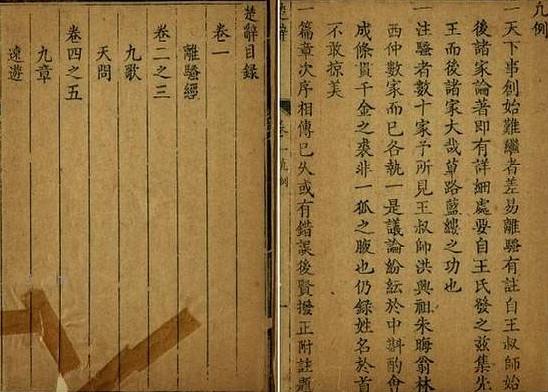 凡例
一天下事創始難繼者差易離騷有註自王叔師始
後諸家論著即有詳細處要自王氏發之茲集先
王而後諸家大哉蓽路藍縷之功也
一注騷者數十家予所見王叔師洪興祖朱晦翁林
西仲數家而已各執一是議論紛紜於中斟酌會
成條貫千金之裘非一狐之腋也仍録姓名於首
不敢掠美
一篇章次序相傳已久或有錯誤後賢撥正附註題
楚辭
卷一凡例
一
楚辭目録
卷一
離騷經
卷二之三
九歌
天問
卷四之五
九章
遠遊